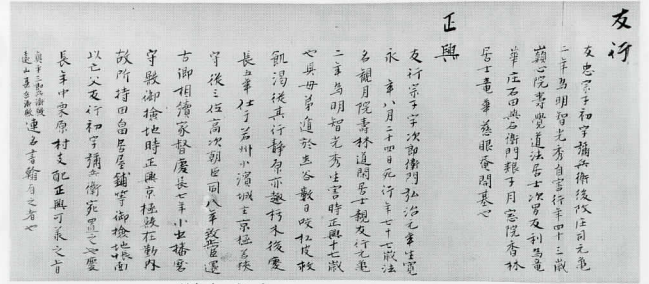 友行
友忠宗子初字彌兵衛後改庄司元亀
二年為明智光秀自害行年四十三歳
巓心院壽覺道法居士次男友利為竜
華庄石田與右衛門猶子月窓院香林
居士竜華慈眼庵開基也
正興
友行宗子字次郎衛門弘治元年生寛
永 年八月二十四日死行年七十七歳法
名観月院壽林道閑居士親友行元亀
二年為明智光秀生害時正興十七歳
也與母弟遁於 谷數日咬松皮
飢渇從其行静原亦趣朽木後慶
長五年仕于若州小濱城主京極若狭
守後三位高次朝臣同八年致當還
古郷相續家督慶長七年小出播磨
守殿御検地時正興京極殿在勤内
故所持田畠居屋鋪等御検地帳面
以亡父友行初字彌兵衛宛置之也慶
長年中栗原村支配正興可兼之旨
連名書翰有之者也